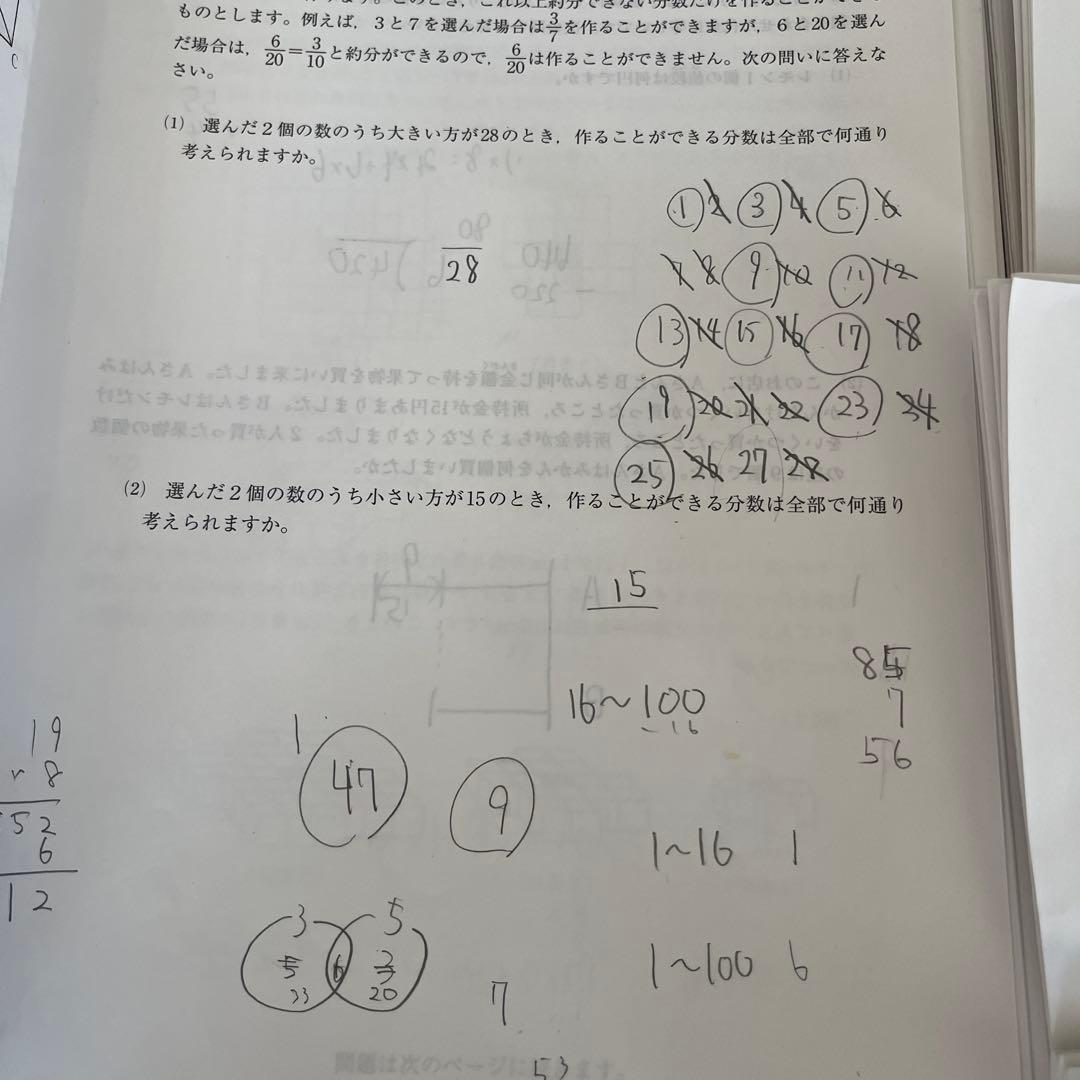 ものとします。例えば，3と7を選んだ場合は3/7を作ることができますが，6と20を選ん
だ場合は，6/20＝3/10と約分ができるので，6/20は作ることができません。次の問いに答えな
さい。
(1) 選んだ2個の数のうち大きい方が28のとき，作ることができる分数は全部で何通り
考えられますか。
1 2 3 4 5 6
7 8 9 10 11 12
13 14 15 16 17 18
19 20 21 22 23 24
25 26 27 28
28
(2) 選んだ2個の数のうち小さい方が15のとき，作ることができる分数は全部で何通り
考えられますか。
15
16〜100
-16
85
7
56
1
47
9
19
8
52
6
12
1〜16 1
1〜100 6
3 5
6
33 20
7
53
問題は次のページに
ます。